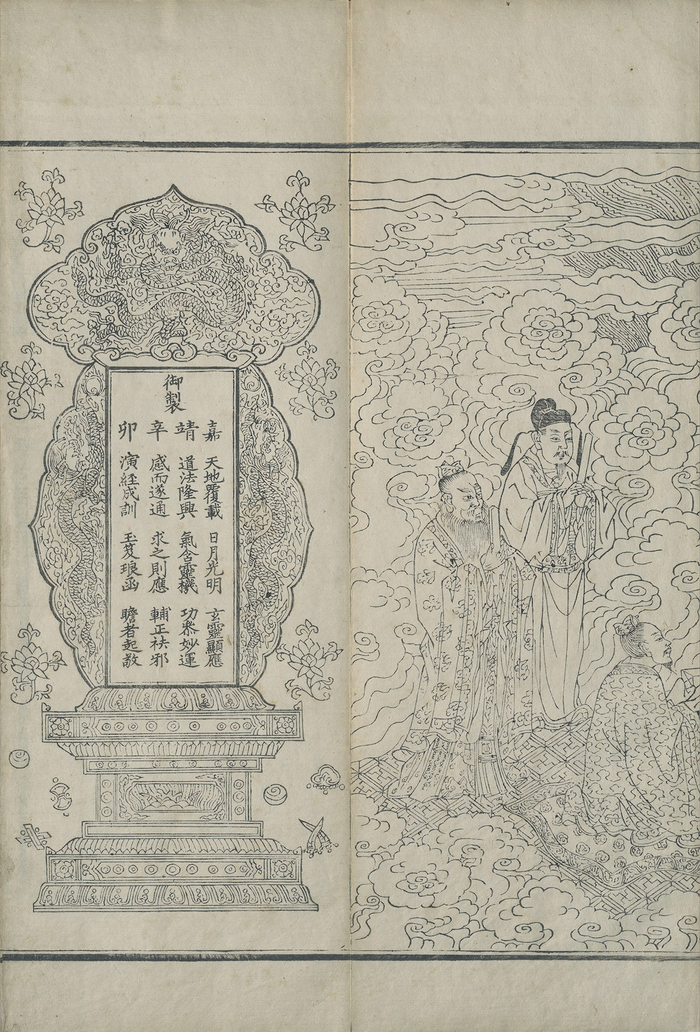 御製
嘉 天地覆載 日月光明 玄靈顯應
靖 道法隆興 氣含靈機 功叅妙運
辛 感而遂通 求之則應 輔正袪邪
卯 演經成訓 玉笈琅函 瞻者起敬